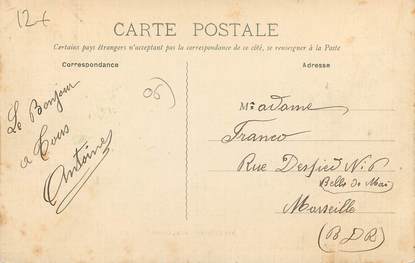 12+
CARTE POSTALE
Certains pays étrangers n'acceptant pas la correspondance de ce côté, se renseigner à la Poste
Correspondance
Le Bonjour
a tous
Antoine
06)
Adresse
Madame
Franco
Rue Despieds N. 8
Belle de Mai
Marseille
(B D R)